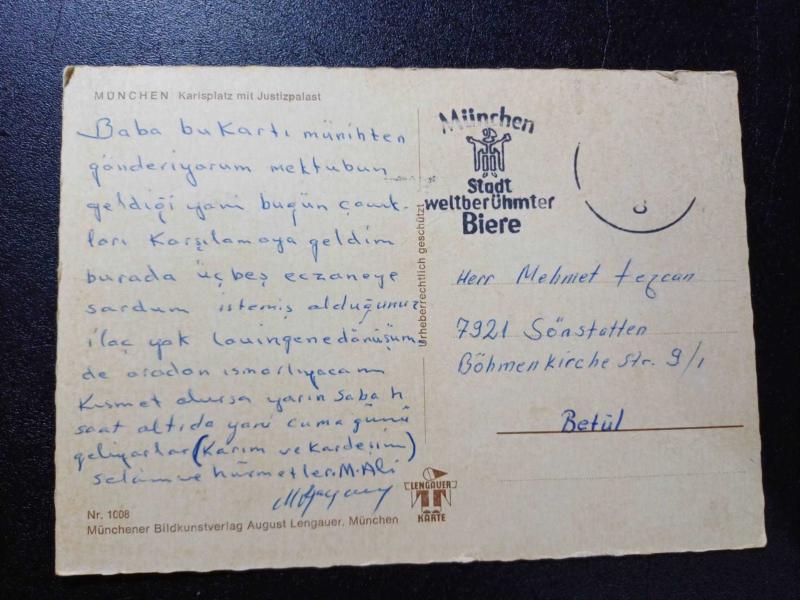 MÜNCHEN Karlsplatz mit Justizpalast
Baba bu Kartı münihten
gönderiyorum mektubun
geldiği yani bugün
ları Karşılamaya geldim
burada üç beş eczaneye
sardum istemiş olduğunuz
ilaç yok Lauingene dönüşüm
de oradan ısmarlıyacam
Kısmet olursa yarın sabah
saat altıda yani cuma günü
geliyorlar (Karım ve Kardeşim)
selam ve hürmetler M. Ali
Nr. 1008
Münchener Bildkunstverlag August Lengauer, München
Urheberrechtlich geschützt
LENGAUER
KARTE
München
Stadt
weltberühmter
Biere
Herr Mehmet tezcan
7921 Sönstatten
Böhmenkirche Str. 9/1
Betül